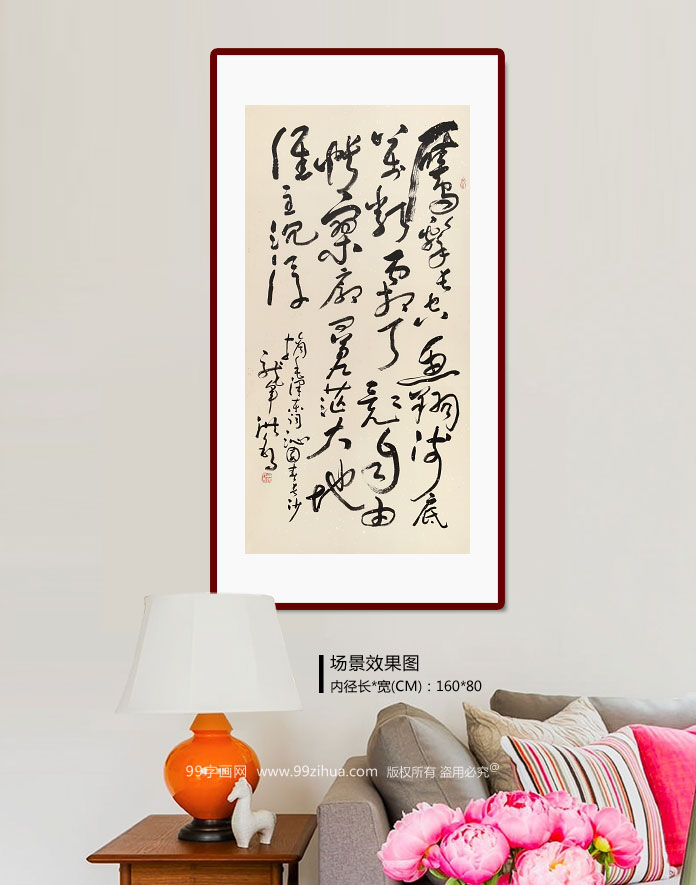 鷹擊长空鱼翔浅底
萬類霜天竞自由
悵寥廓问苍茫大地
谁主沉浮
摘毛泽东词沁园春长沙
龙年
场景效果图
内径长*宽(CM)：160*80
99字画网 www.99zihua.com 版权所有 盗用必究@